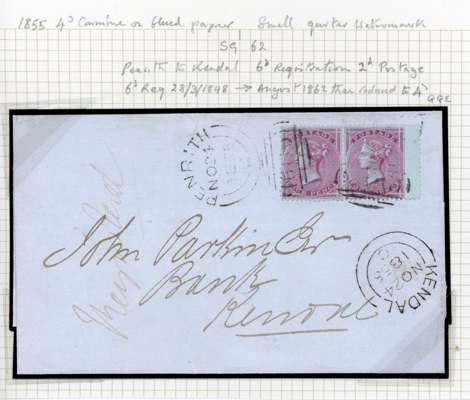 1855 4d Carmine on blued paper Small garter Watermark
SG 62
Penrith to Kendal 6d Registration 2d Postage
6d Reg 28/3/1848 → August 1862 then reduced to 4d
GGE
PENRITH
NO 24
POSTAGE POSTAGE
John Parkin Esr
Bank
Kendal
KENDAL
NO 24
C